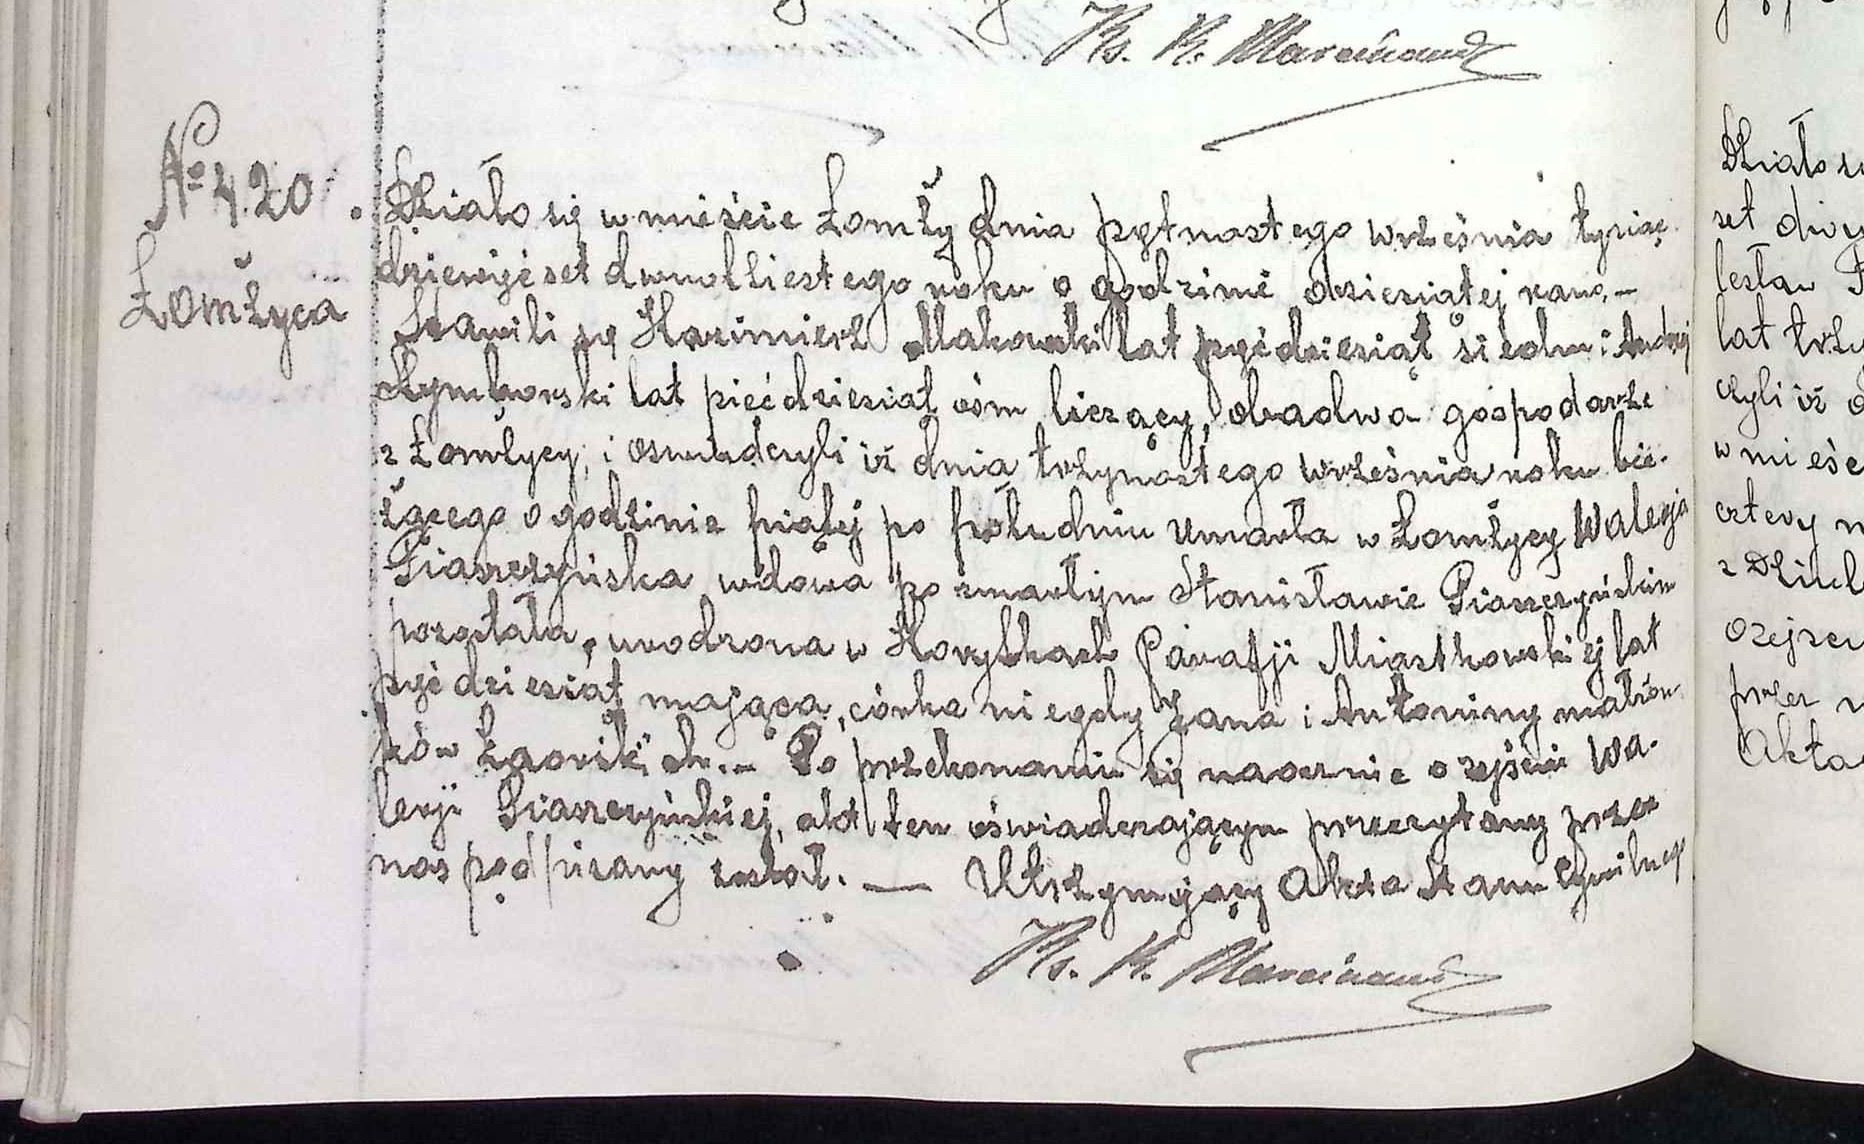 Ks. K. Marcinand
№ 420
Łomżyca
Działo się w mieście Łomży dnia pętnastego września tysiąc
dziewięćset dwudziestego roku o godzinie dziesiątej rano.—
Stawili się Kazimierz Makowski lat pyćdziesiąt siedm i Andrzej
lat pięćdziesiąt ośm liczący, obadwa gospodarze
z Łomżycy, i oswiadczyli iż dnia trzynastego września roku bie-
żącego o godzinie piątej po południu umarła w Łomżycy Waleryja
Piaszczyńska wdowa po zmarłym Stanisławie Piaszczyńskim
pozostała, urodzona w Korytkach Parafji Miastkowskiej lat
pyćdziesiąt mająca, córka niegdy Jana i Antoniny małżon-
ków .— Po przekonaniu się naocznie o zejściu Wa-
lerji Piaszczyńskiej, akt ten oświadczającym przeczytany przez
nas podpisany został. — Utrzymujący Akta Stanu Cywilnego
Ks. K. Marcinand
Działo si
set dwu
lat trzy
czyli iż
w mieśc
cztery
z
przez
Akta